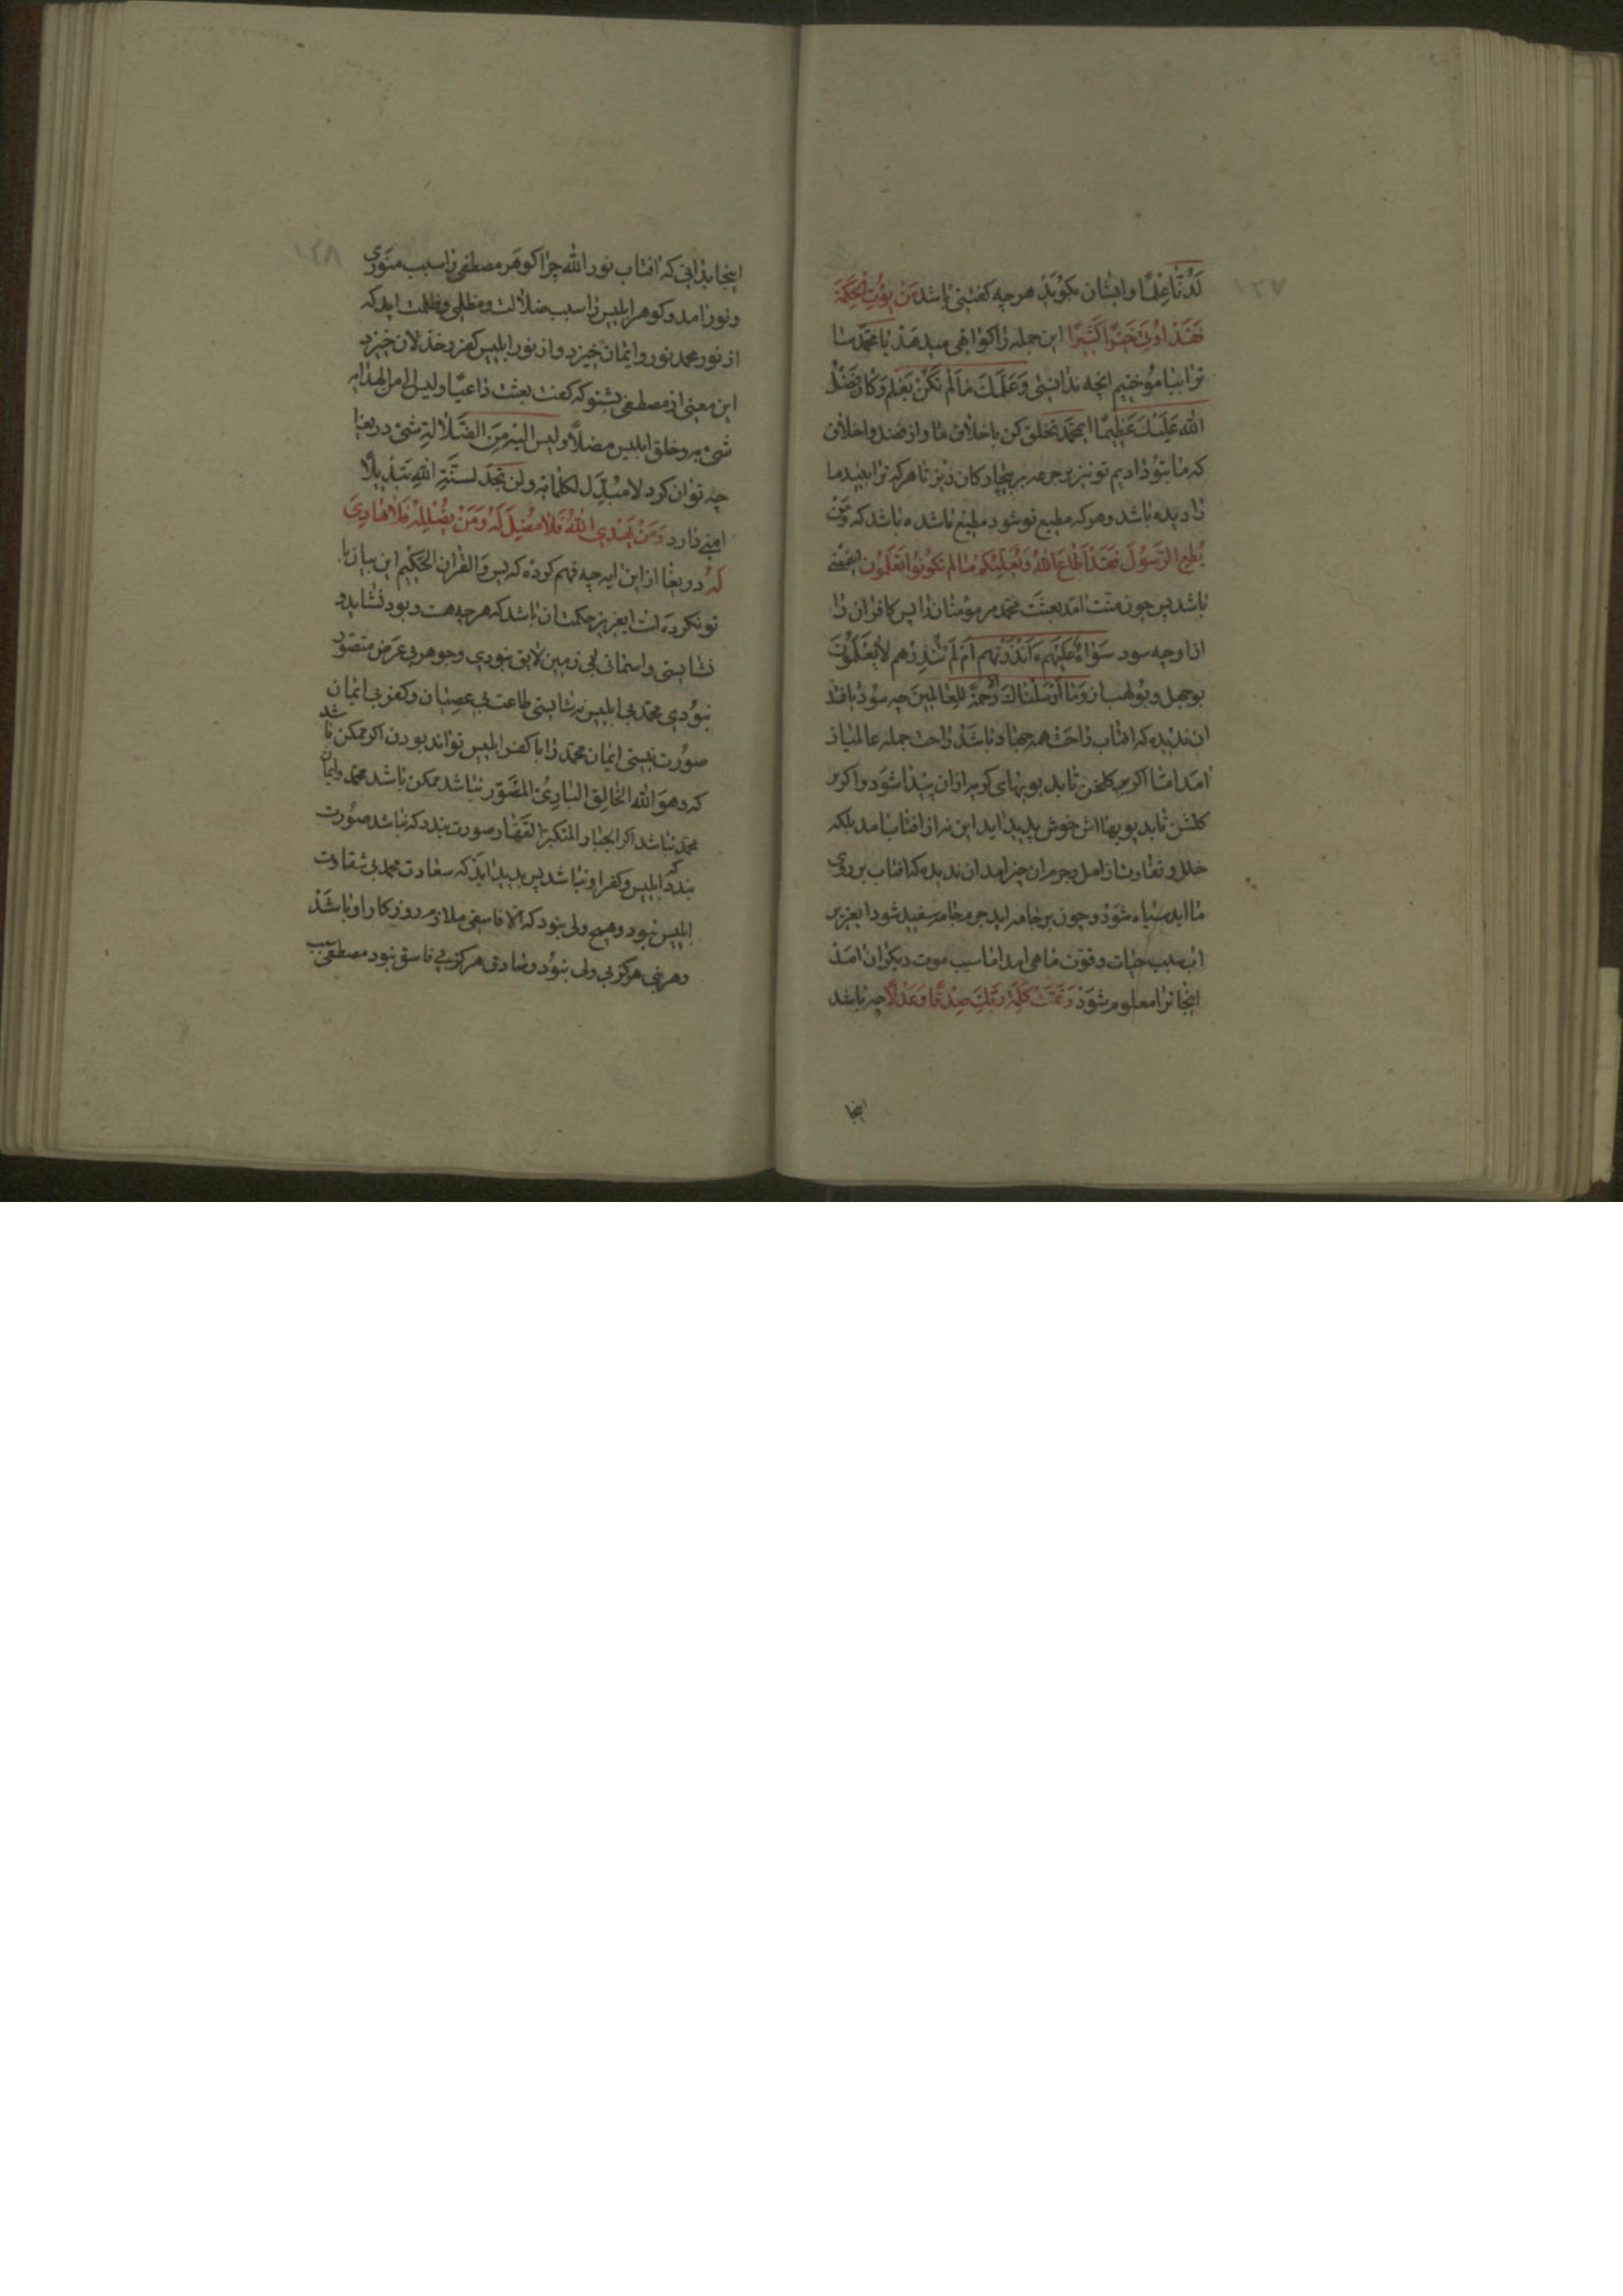 ۱۲۷
لَدُنَّا عِلْمًا وایشان بکویند هرچه کفتنی باشد مَنْ یُؤْتَ الْحِکْمَةَ
فَقَدْ اُوتِیَ خَیْرًا کَثیرًا این جمله را کواهی میدهد یا محمد ما
ترا بیاموختیم انچه ندانستی وَعَلَّمَكَ مٰا لَمْ تَکُنْ تَعْلَم وَکٰانَ فَضْلُ
اللّٰهِ عَلَیْكَ عَظِیمًا ایمحمد تخلق کن باخلاق ما و از فضل و اخلاق
که ما بتو دادیم تو نیز جرعه بر بیچارکان ریز تا هرکه ترا بیند ما
را دیده باشد وهرکه مطیع تو شود مطیع ما شده باشد که وَمَن
یُطِعِ الرَّسُولَ فَقَدْ اَطاعَ اللّٰهَ وَیُعَلِّمُکُمْ مٰا لَمْ تَکُونُوا تَعْلَمُون
باشد پس چون منت امد بعثت محمد مر مؤمنان را پس کافران را
ازاو چه سود سَوٰاءٌ عَلَیْهِم ءَاَنْذَرْتَهُم اَمْ لَمْ تُنْذِرْهُم لا
بوجهل وبولهب از وَمٰا اَرْسَلْنٰاكَ اِلّا رَحْمَةً لِلْعٰالَمینَ چه سود یافتند
ان ندیده که افتاب راحت همه جهاد باشد راحت جمله عالمیان
امد اما اکر بر کلخن تابد بویهای کریه ازان پیدا شود واکر بر
کلشن تابد بویها اش خوش پدید اید این نه از افتاب امد بلکه
خلل و تفاوت از اصل وجوهر ان چیز امد ان ندیده که افتاب بر روی
ما اید سیاه شود وچون بر جامه اید جرم جامه سفید شود ایعزیز
اب سبب حیات وقوت ماهی امد اما سبب موت دیکران امد
اینجا ترا معلوم شود وَتَمَّتْ کَلِمَةُ رَبِّكَ صِدْقًا وَعَدْلًا چه باشد
اینجا
۱۲۸
اینجا بدانی که افتاب نور الله چرا کوهر مصطفی را سبب منوری
ونور امد وکوهر ابلیس را سبب ضلالت ومظلمی وظلمت اید که
از نور محمد نور وایمان خیزد واز نور ابلیس کفر وخذلان خیزد
این معنی از مصطفی بشنو که کفت بعثت داعیًا ولیس
شیء وخلق ابلیس مضلًا ولیس الیه مِنَ الضَّلٰالَةِ شیء دریغا
چه توان کرد لا مبدّل لکلماته ولن تجد لسنّةِ اللّٰهِ تبدیلًا
دارد وَمَنْ یَهْدِی اللّٰهُ فَلٰا مُضِلَّ لَهُ وَمَنْ یُضْلِلْهُ فَلٰا هٰادِیَ
لَهُ دریغا از این ایه چه فهم کرده که یس وَالقران الحَکیم این بیان با
تو نکرده ات ایعزیز حکمت ان باشد که هرچه هست وبود نشاید و
نشایستی واسمان بی زمین لایق نبودی وجوهر بی عرض متصور
نبودی محمد بی ابلیس نشایستی طاعت بی عصیان وکفر بی ایمان
صورت نبستی ایمان محمد را با کفر ابلیس تواند بودن اکر ممکن باشد
که وهو اللّٰه الخالق الباریُ المصوّر نباشد ممکن باشد محمد وایمان
محمد نباشد اکر الجبار المتکبر القهار صورت بندد که نباشد صورت
بندد که ابلیس وکفر او نباشد پس پدید اید که سعادت محمد بی شقاوت
ابلیس نبود وهیچ ولی نبود که الا فاسقی ملازم روزکار او باشد
وهر نبی هرکز بی ولی نبود وصادق هرکز بی فاسق نبود مصطفی سبب